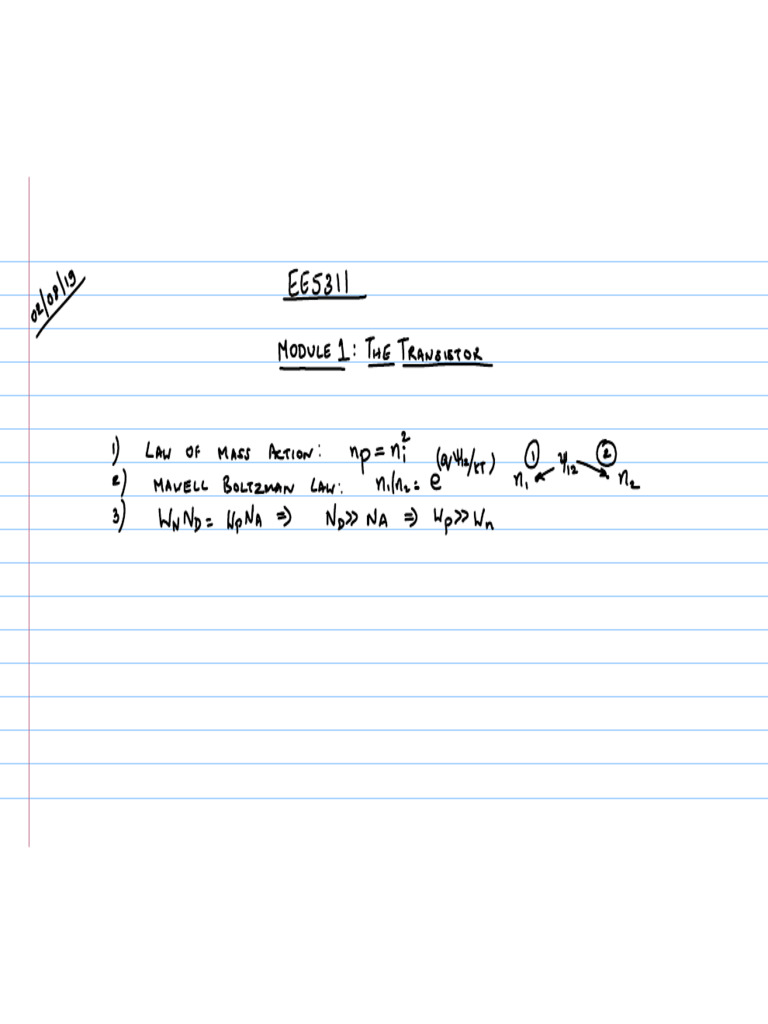 02/08/19
EE5311
MODULE 1: THE TRANSISTOR
1) LAW OF MASS ACTION: np = nᵢ²
2) MAVELL BOLTZMAN LAW: n₁/n₂ = e^(qψ₁₂/kT) ① ψ₁₂ ② n₁ n₂
3) W_N N_D = W_P N_A ⇒ N_D >> N_A ⇒ W_P >> W_n